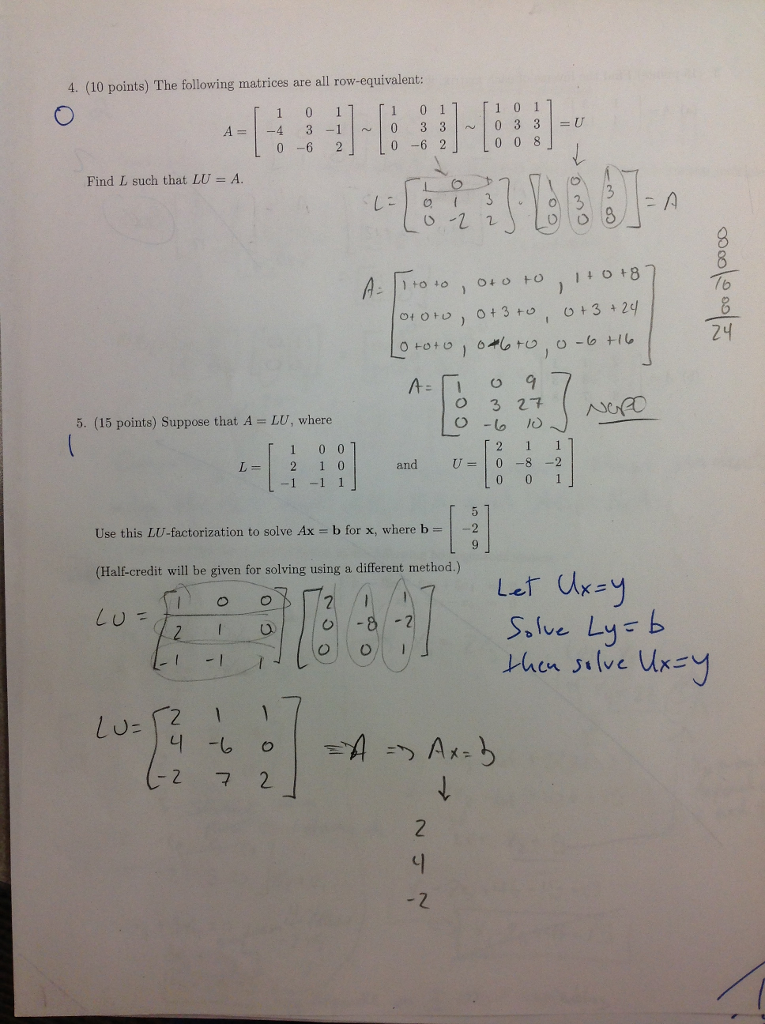 4. (10 points) The following matrices are all row-equivalent:
0
A = [ 1 0 1 ; -4 3 -1 ; 0 -6 2 ] ~ [ 1 0 1 ; 0 3 3 ; 0 -6 2 ] ~ [ 1 0 1 ; 0 3 3 ; 0 0 8 ] = U
Find L such that LU = A.
L = [ 1 0 1 ; 0 1 3 ; 0 -2 2 ] · [ 1 0 1 ; 0 3 3 ; 0 0 8 ] = A
8
8
16
8
24
A = [ 1+0+0 , 0+0+0 , 1+0+8
0+0+0 , 0+3+0 , 0+3+24
0+0+0 , 0-6+0 , 0-6+16 ]
A = [ 1 0 9
0 3 27
0 -6 10 ]
5. (15 points) Suppose that A = LU, where
1
L = [ 1 0 0 ; 2 1 0 ; -1 -1 1 ] and U = [ 2 1 1 ; 0 -8 -2 ; 0 0 1 ]
Use this LU-factorization to solve Ax = b for x, where b = [ 5 ; -2 ; 9 ]
(Half-credit will be given for solving using a different method.)
LU = [ 1 0 0 ; 2 1 0 ; -1 -1 1 ] [ 2 1 1 ; 0 -8 -2 ; 0 0 1 ]
Let Ux=y
Solve Ly=b
then solve Ux=y
LU= [ 2 1 1 ; 4 -6 0 ; -2 7 2 ] =A => Ax=b
↓
2
4
-2